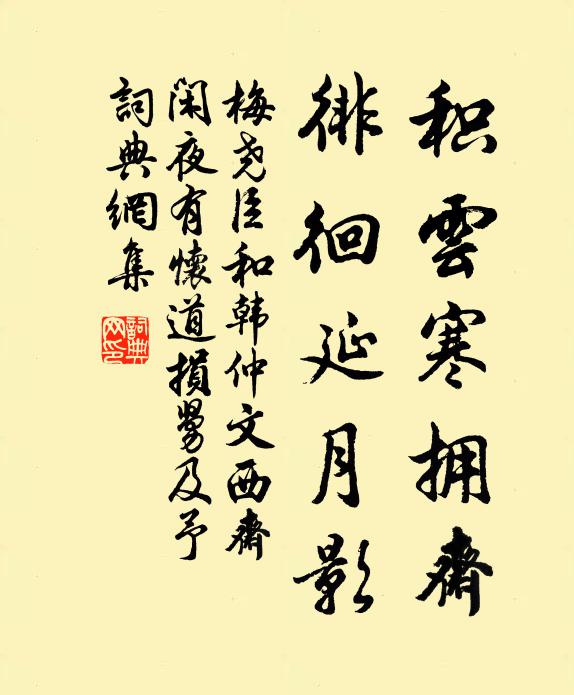 积雲寒拥齋
徘徊延月影
梅尧臣和韩仲文西齋
闲夜有懷道損舅及予
詞典網集
詞典网印